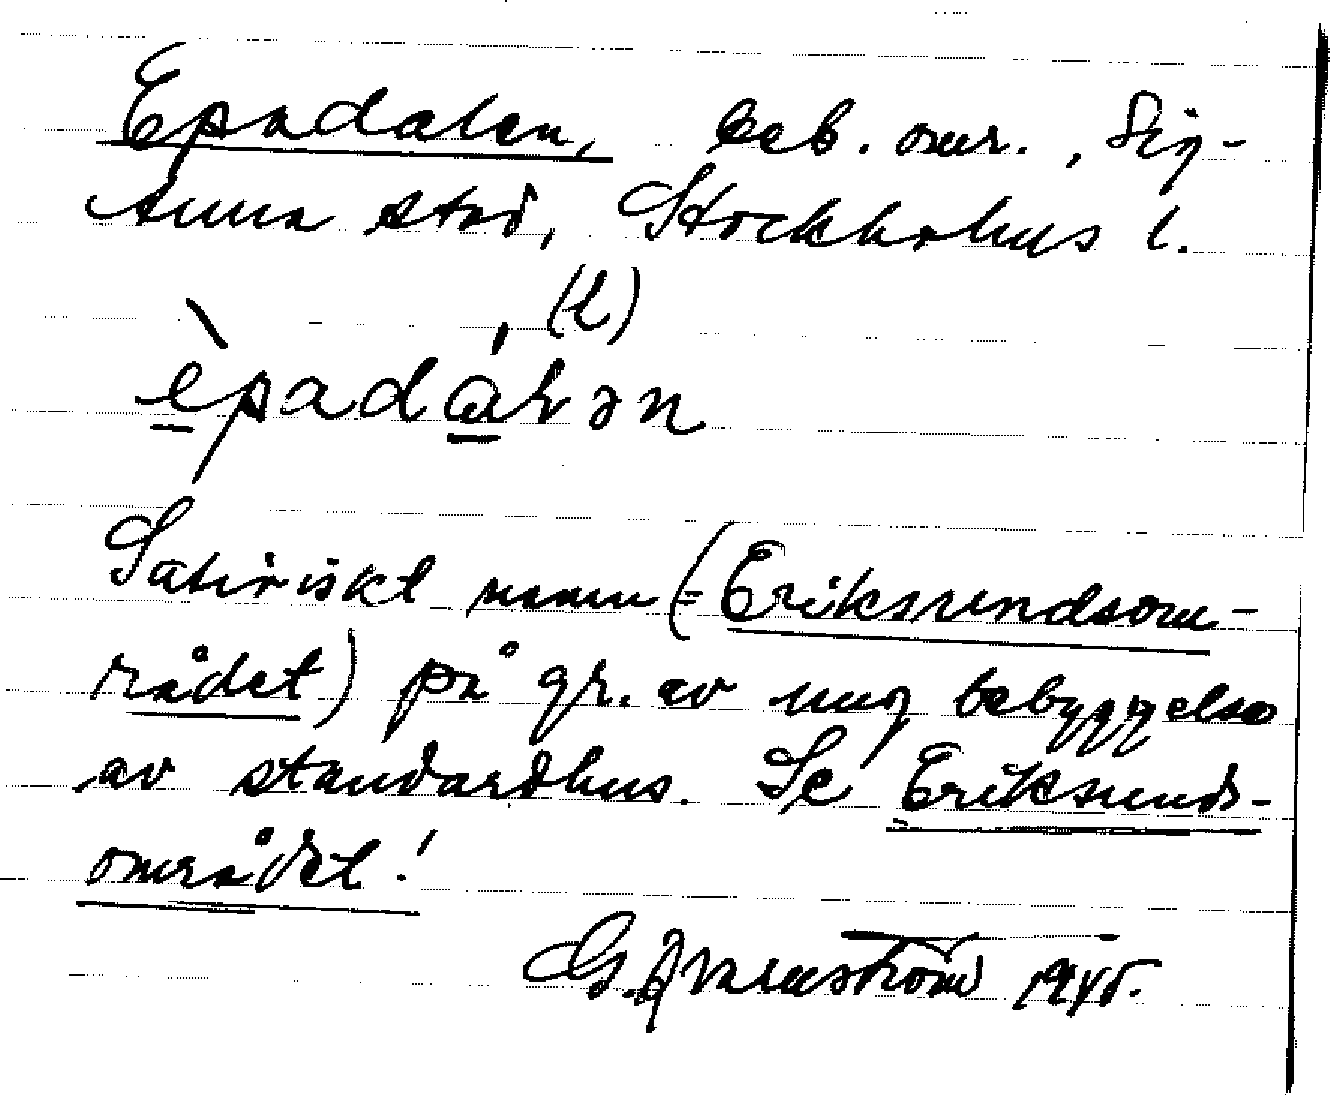 Epadalen, beb. omr., Sig-
tuna stad, Stockholms l.
(l)
èpadálən
Satiriskt namn (= Eriksundsom-
rådet) på gr. av ung bebyggelse
av standardhus. Se Eriksunds-
området!
G.